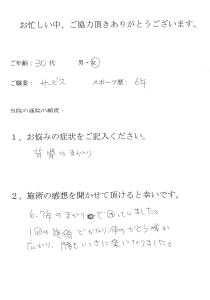 お忙しい中、ご協力頂きありがとうございます。
ご年齢：30代 男・女
ご職業： サービス スポーツ歴： 6年
当院の通院の頻度：
１、お悩みの症状をご記入ください。
背骨のまがり
２、施術の感想を聞かせて頂けると幸いです。
6.7年のまがりで困っていました。
1回の施術でかなり体のかどう域が
広がり、腰もいっきに楽になりました